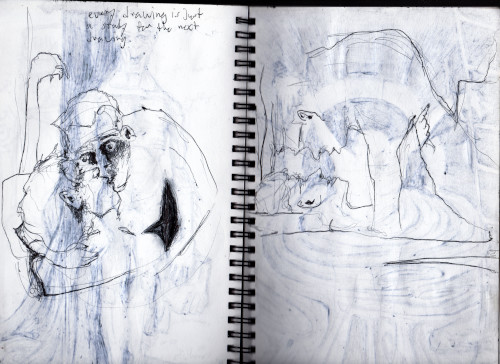 every drawing is just
a study for the next
drawing.